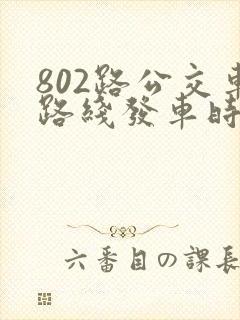 802路公交車
路綫發車時
六番目の課長